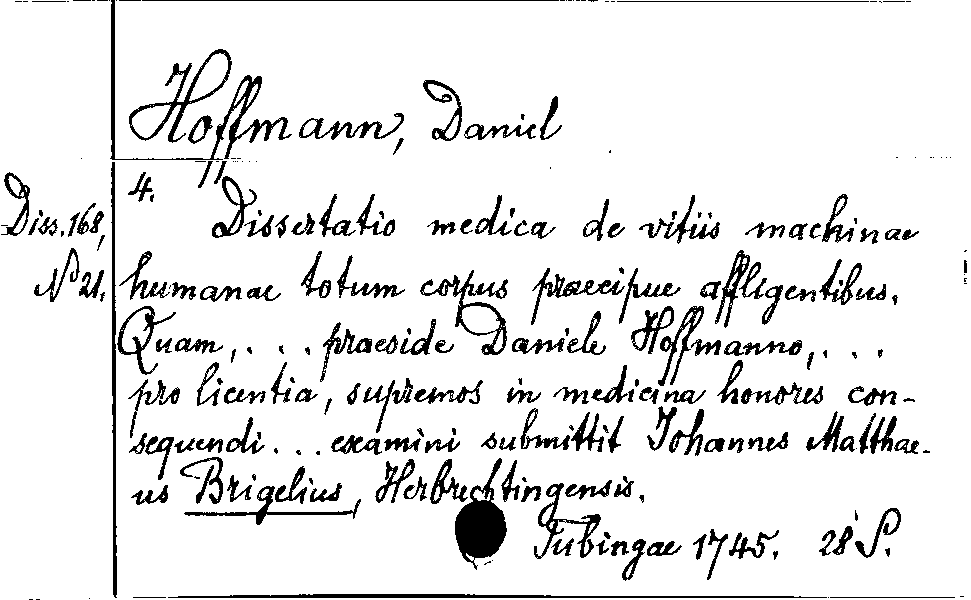 Hoffmann, Daniel
4.
Diss. 168,
No 21.
Dissertatio medica de vitiis machinae
humanae totum corpus praecipue affligentibus.
Quam, . . . praeside Daniele Hoffmanno, . . .
pro licentia, supremos in medicina honores con-
sequendi . . . examini submittit Johannes Matthae-
us Brigelius, Herbrechtingensis.
Tubingae 1745. 28 S.